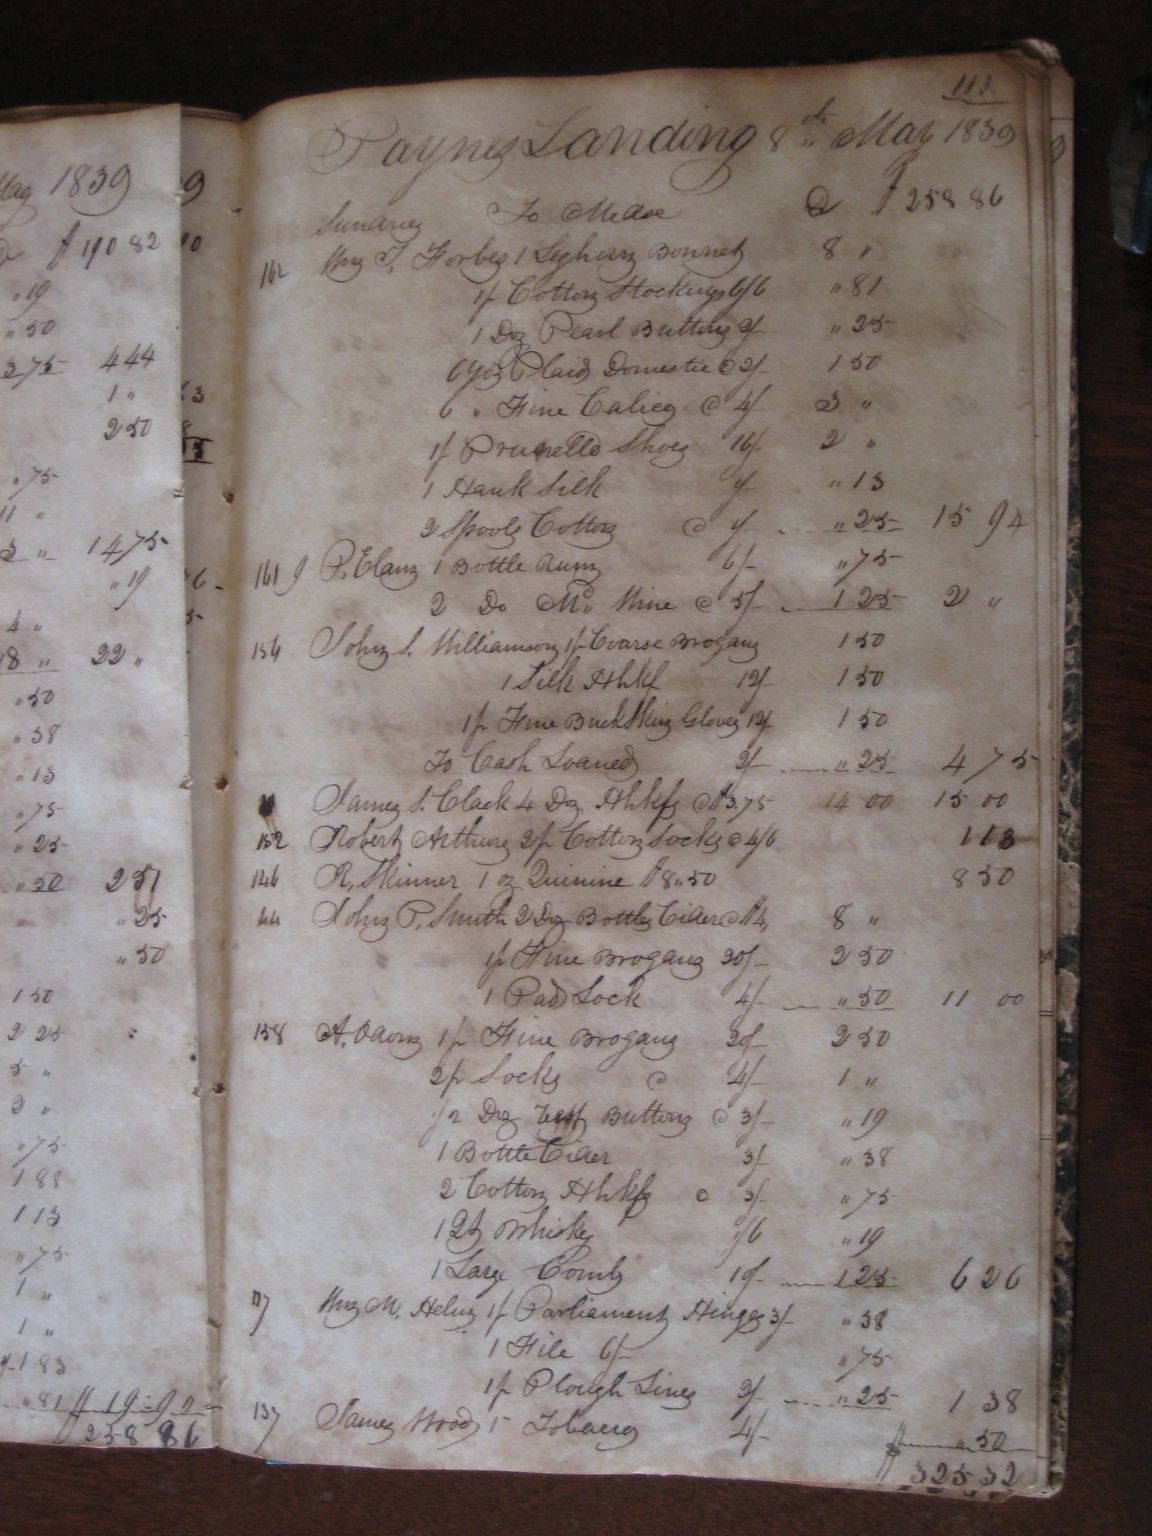 May 1839
$ 190 82
" 19
" 50
3 75 444
1 "
250
" 75
11 "
3 " 14 75
" 19
4 "
18 " 22 "
" 50
" 38
" 13
" 75
" 25
" 50 2 51
" 25
" 50
1 50
2 25
5 "
3 "
" 75
1 88
1 13
" 75
1 "
1 "
1 83
" 81
$ 258 86
113
Paynes Landing 8th May 1839
$ 258 86
Sundries To Mdse
162 Wm T. Forbes 1 Leghorn Bonnet 8 "
1 p Cotton Stockings 6/6 " 81
1 Doz Pearl Buttons 2/- " 25
6 yds Plaid Domestic @ 2/- 1 50
6 " Fine Calico @ 4/- 3 "
1 p Prunello Shoes 16/- 2 "
1 Hank Silk 1/- " 13
2 Spools Cotton @ 1/- " 25 15 94
161 P. Elam 1 Bottle Rum 6/- " 75
2 Do Wine @ 5/- 1 25 2 "
154 John S. Williamson 1 p Coarse Brogans 1 50
1 Silk Hhkf 12/- 1 50
1 p Fine Buckskin Gloves 12/- 1 50
To Cash Loaned 2/- " 25 4 75
James S. Clack 4 Doz Hhkfs @ $3.75 14 00 15 00
152 Robert Arthurs 2 p Cotton Socks @ 4/6 1 13
146 R. Skinner 1 oz Quinine $8.,50 8 50
44 John P. Smith 2 Doz Bottles Cider @ $4, 8 "
1 p Fine Brogans 20/- 2 50
1 Pad Lock 4/- " 50 11 00
158 A. Odom 1 p Fine Brogans 20/- 2 50
2 p Socks @ 4/- 1 "
1/2 Doz Vest Buttons @ 3/- " 19
1 Bottle Cider 3/- " 38
2 Cotton Hhkfs @ 3/- " 75
1 Qt Whiskey 1/6 " 19
1 Large Comb 10/- 1 25 6 26
Wm M. Helm 1 p Parliament Hinges 3/- " 38
1 File 6/- " 75
1 p Plough Lines 2/- " 25 1 38
137 James Wood Tobacco 4/- " 50
$ 325 32